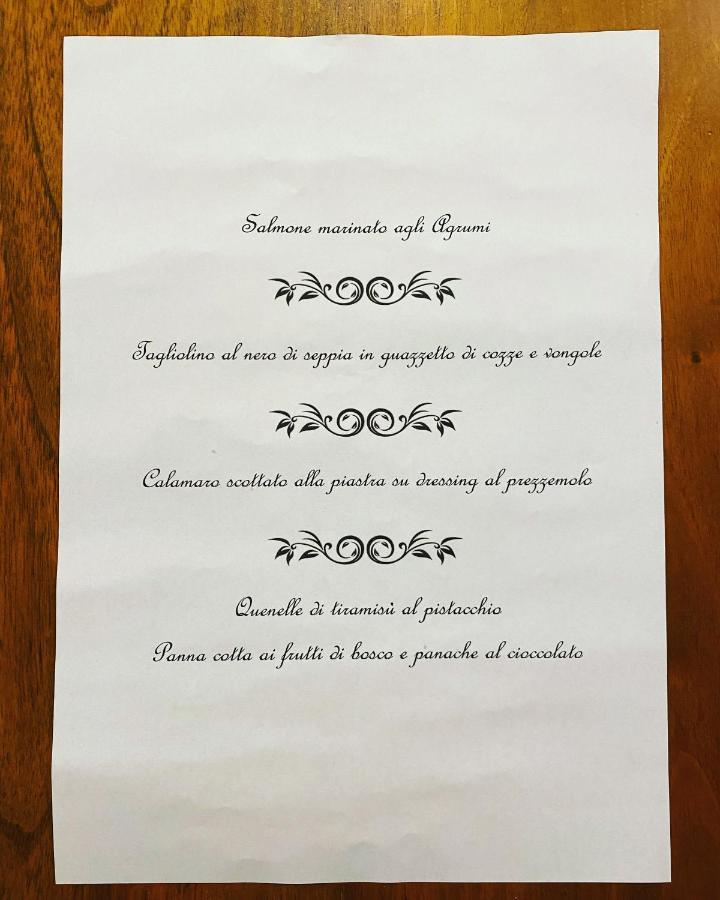 Salmone marinato agli Agrumi
Tagliolino al nero di seppia in guazzetto di cozze e vongole
Calamaro scottato alla piastra su dressing al prezzemolo
Quenelle di tiramisù al pistacchio
Panna cotta ai frutti di bosco e panache al cioccolato